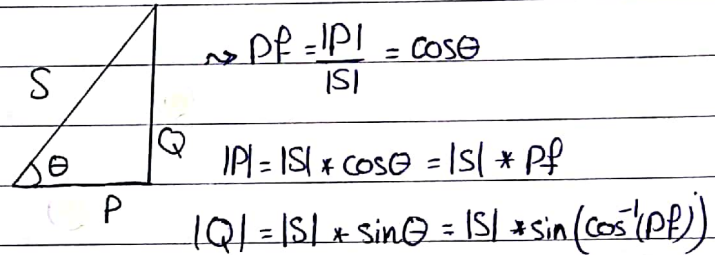 S
θ
Q
P
~> Pf = |P| / |S| = cosθ
|P| = |S| * cosθ = |S| * Pf
|Q| = |S| * sinθ = |S| * sin(cos⁻¹(Pf))